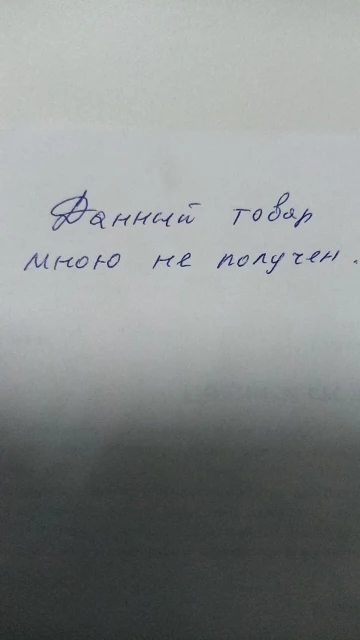 Данный товар
мною не получен.